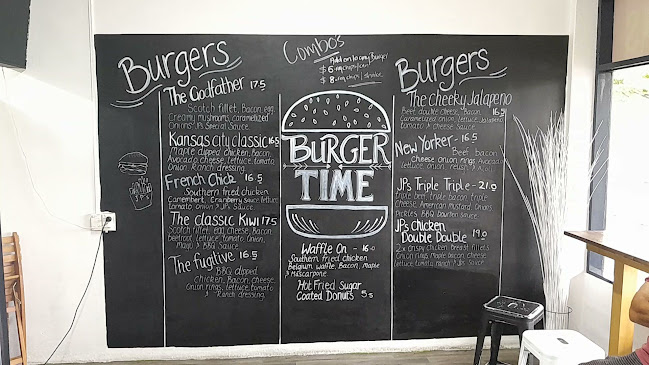 Burgers
The Godfather 17.5
Scotch fillet, Bacon, egg,
Creamy mushrooms, caramelized
Onions, JP's Special Sauce
Kansas city classic 16.5
Maple dipped chicken, Bacon
Avocado cheese, lettuce, tomato
Onion Ranch dressing.
French Chick 16.5
Southern fried chicken
Camembert, Cranberry sauce lettuce
tomato onion & JP's Sauce
The classic Kiwi 17.5
Scotch fillet, egg, cheese, Bacon
Beetroot, lettuce, tomato, Onion,
Mayo & BBQ Sauce
The fugitive 16.5
BBQ dipped
chicken, Bacon, cheese
Onion rings, lettuce, tomato
& Ranch dressing.
Combo's
Add on to any Burger
$6 - reg chips/can
$8 - reg chips / shake
BURGER
TIME
Waffle On - 16.0
Southern fried chicken
Belgium waffle, Bacon, Maple
& Mascarpone
Hot Fried Sugar
Coated Donuts 5.5
Burgers
The Cheeky Jalapeno
16.5
Beef double cheese, Bacon
Caramelized onion, lettuce, Jalapeno
tomato & cheese Sauce
New Yorker - 16.5
Beef bacon
Cheese onion rings, Avocado
lettuce, onion, relish &
JP's Triple Triple - 21.5
triple beef, triple bacon, triple
Cheese, American mustard, Onions
Pickles BBQ Bourbon Sauce
JPs chicken
Double Double 19.0
2x crispy chicken Breast fillets
Onion rings Maple Bacon, cheese
lettuce, tomato, ranch & JPs Sauce